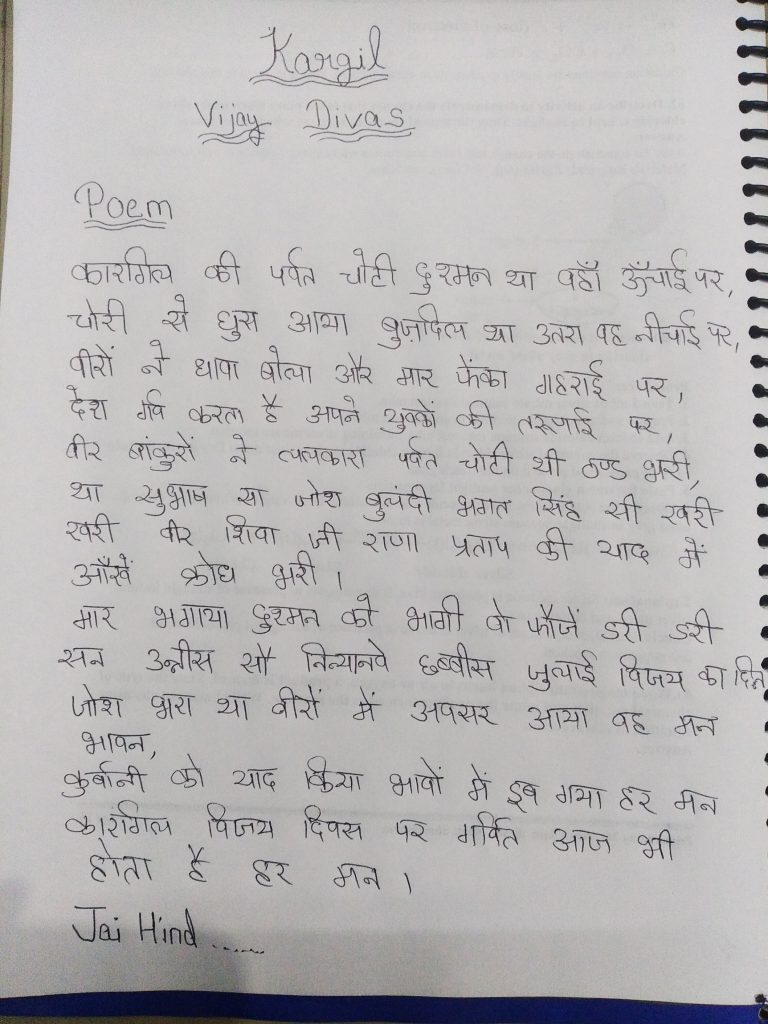 Kargil
Vijay Divas
Poem
कारगिल की पर्वत चोटी दुश्मन था वहाँ ऊँचाई पर,
चोरी से घुस आया बुज़दिल था उतरा वह नीचाई पर,
वीरों ने धावा बोला और मार फेंका गहराई पर,
देश गर्व करता है अपने युवकों की तरूणाई पर,
वीर बांकुरों ने ललकारा पर्वत चोटी थी ठण्ड भरी,
था सुभाष सा जोश बुलंदी भगत सिंह सी खरी
खरी वीर शिवा जी राणा प्रताप की याद में
आँखें क्रोध भरी।
मार भगाया दुश्मन को भागी वो फौजें डरी डरी
सन उन्नीस सौ निन्यानवे छब्बीस जुलाई विजय का दिन
जोश भरा था वीरों में अवसर आया वह मन
भावन,
कुर्बानी को याद किया भावों में डूब गया हर मन
कारगिल विजय दिवस पर गर्वित आज भी
होता है हर मन।
Jai Hind .......